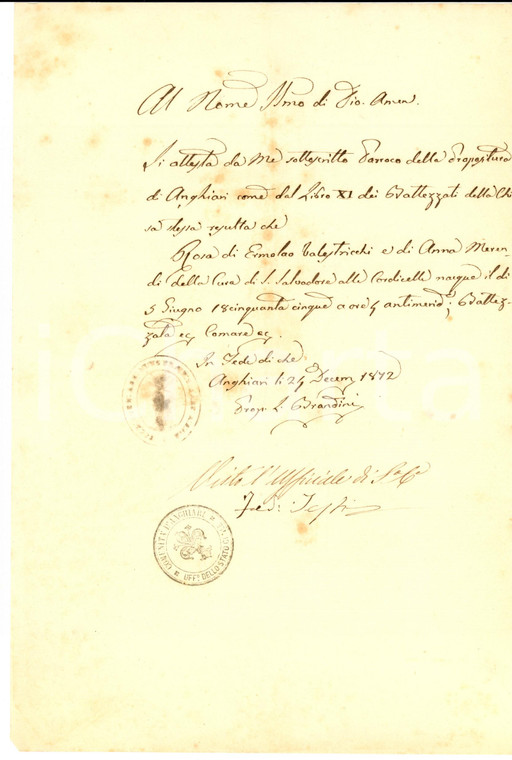 Al Nome SSmo di Dio. Amen.
Si attesta da Me sottoscritto Parroco della Propositura
di Anghiari come dal Libro XI dei Battezzati della Chie
sa stessa resulta che
Rosa di Ermolao Valestricchi e di Anna Meren-
di della Cura di S. Salvadore alle Cordicelle nacque il di
5 Giugno 18cinquanta cinque a ore 4 antimerid:; Battez-
zata ec, Comare ec.
In Fede di che
Anghiari li 24 Decem. 1872
Prop. L. Brandini
Visto l'Ufficiale di S. C.
COMUNITÀ D'ANGHIARI
UFF. DELLO STATO CI